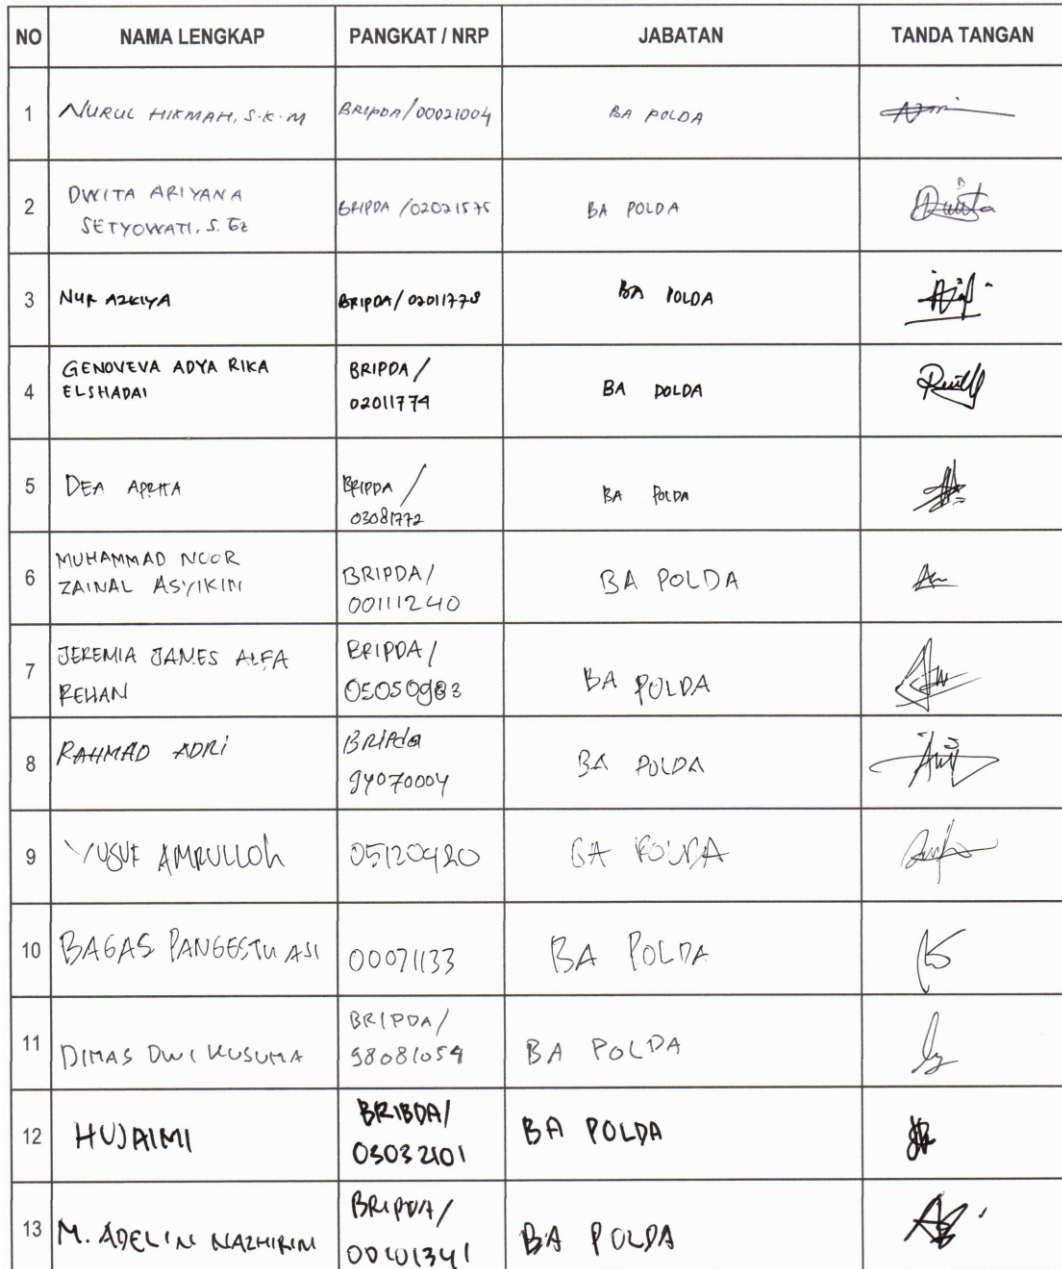 NO NAMA LENGKAP PANGKAT / NRP JABATAN TANDA TANGAN
1 NURUL HIKMAH, S.K.M BRIPDA/00021004 BA POLDA
2 DWITA ARIYANA
SETYOWATI, S. Gz BRIPDA /02021575 BA POLDA
3 NUR AZKIYA BRIPDA/02011778 BA POLDA
4 GENOVEVA ADYA RIKA
ELSHADAI BRIPDA/
02011774 BA POLDA
5 DEA BRIPDA/
03081772 BA POLDA
6 MUHAMMAD NOOR
ZAINAL ASYIKIN BRIPDA/
00111240 BA POLDA
7 JEREMIA JAMES ALFA
REHAN BRIPDA/
05050983 BA POLDA
8 RAHMAD ADRI BRIPDA
94070004 BA POLDA
9 YUSUF AMRULLOh 05120920 BA POLDA
10 BAGAS PANGESTU AJI 00071133 BA POLDA
11 DIMAS DWI KUSUMA BRIPDA/
98081054 BA POLDA
12 HUJAIMI BRIBDA/
03032101 BA POLDA
13 M. ADELIN NAZHIRIN BRIPDA/
BA POLDA